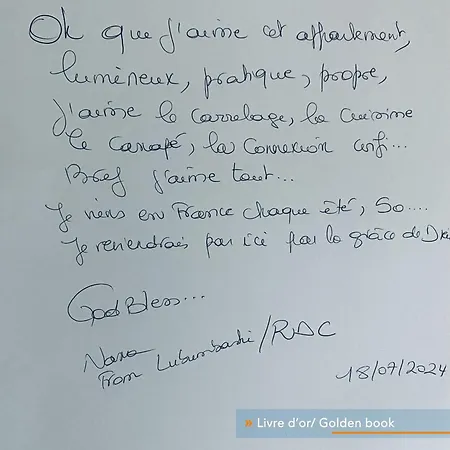 Oh que j'aime cet appartement,
lumineux, pratique, propre,
j'aime le carrelage, la cuisine
le canapé, la connexion wifi...
Bref j'aime tout...
Je viens en France chaque été, So....
Je reviendrais par ici par la grâce de
God Bless...
Nana
From Lubumbashi/RDC
18/07/2024
» Livre d'or/ Golden book